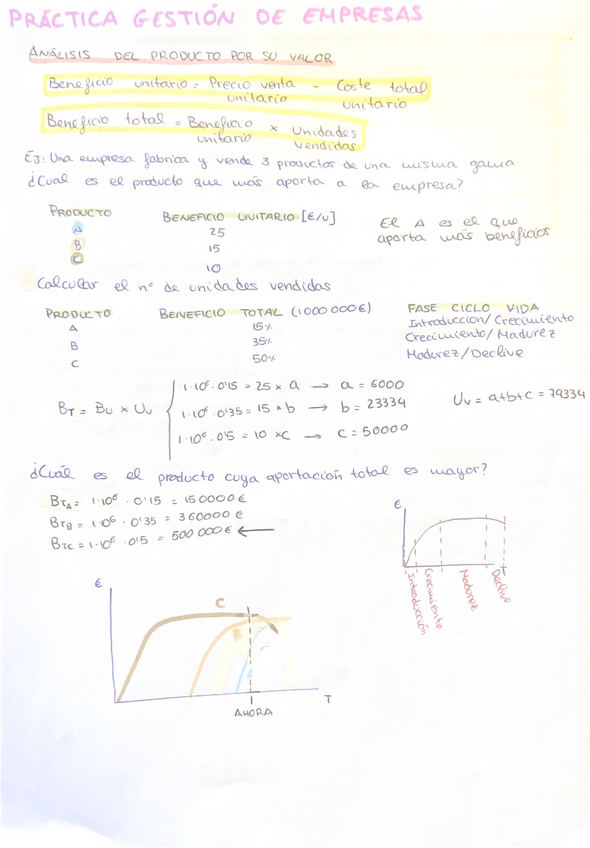 PRÁCTICA GESTIÓN DE EMPRESAS
ANÁLISIS DEL PRODUCTO POR SU VALOR
Beneficio unitario = Precio venta unitario - Coste total unitario
Beneficio total = Beneficio unitario × Unidades vendidas
EJ: Una empresa fabrica y vende 3 productos de una misma gama
¿Cual es el producto que más aporta a la empresa?
PRODUCTO BENEFICIO UNITARIO [€/u]
A 25
B 15
C 10
El A es el que
aporta más beneficios
Calcular el nº de unidades vendidas
PRODUCTO BENEFICIO TOTAL (1000 000€) FASE CICLO VIDA
A 15% Introducción/Crecimiento
B 35% Crecimiento/Madurez
C 50% Madurez/Declive
BT = BU × UV
1·10⁶·0'15 = 25 × a → a = 6000
1·10⁶·0'35 = 15 × b → b = 23334
1·10⁶·0'5 = 10 × C → C = 50000
UV = a+b+c = 79334
¿Cuál es el producto cuya aportación total es mayor?
BTA = 1·10⁶ · 0'15 = 150000€
BTB = 1·10⁶ · 0'35 = 360000 €
BTC = 1·10⁶ · 0'5 = 500 000€ ←
€
Introducción
Crecimiento
Madurez
Declive
T
€
C
B
A
T
AHORA